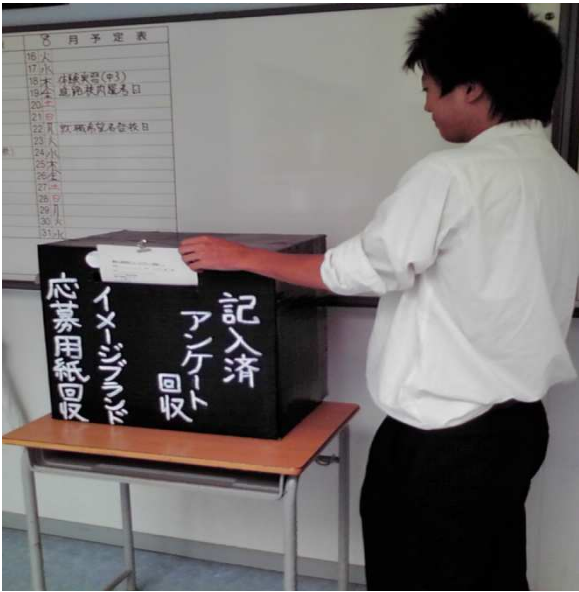 8月予定表
16 火
17 水
18 木 体験実習(中3)
19 金
20 土
21 日
22 月 就職希望者登校日
23 火
24 水
25 木
26 金
27 土
28 日
29 月
30 火
31 水
記入済
アンケート
回収
イメージブランド
応募用紙回収